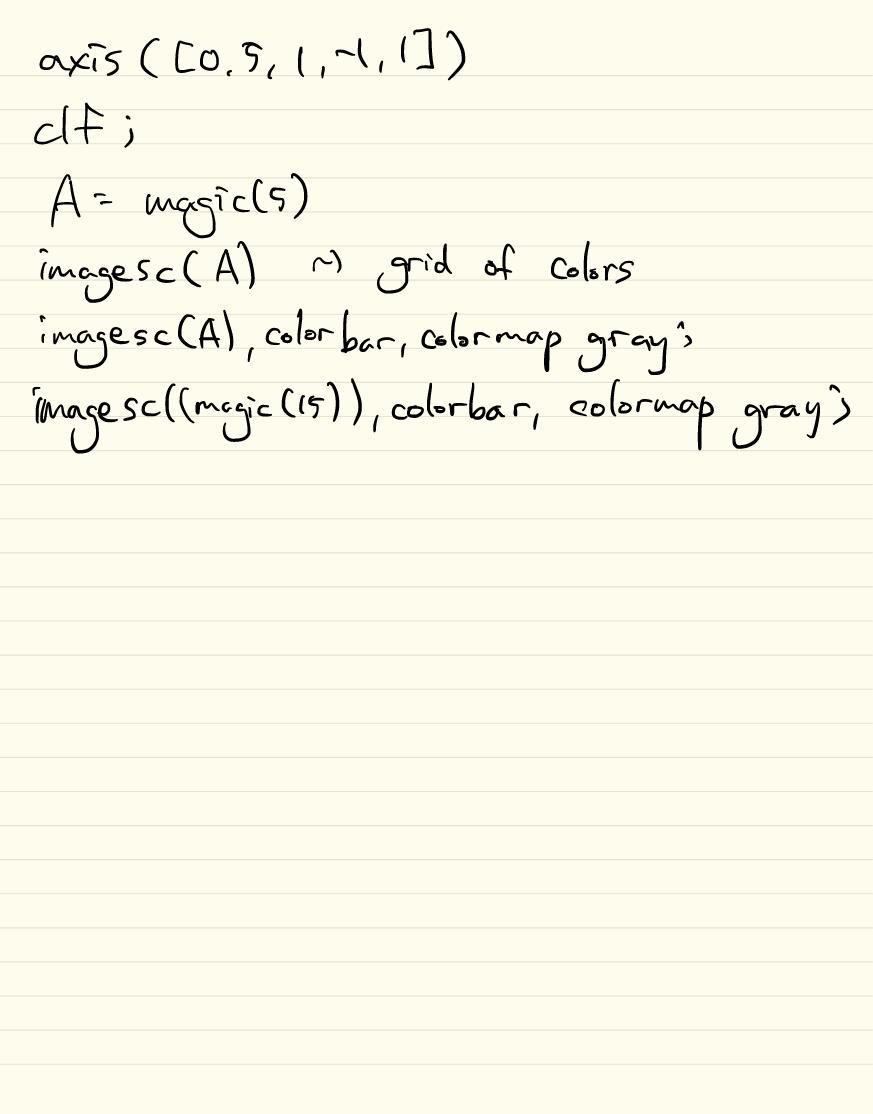 axis([0.5, 1, -1, 1])
clf;
A = magic(5)
imagesc(A) ~> grid of colors
imagesc(A), colorbar, colormap gray;
imagesc((magic(15)), colorbar, colormap gray;